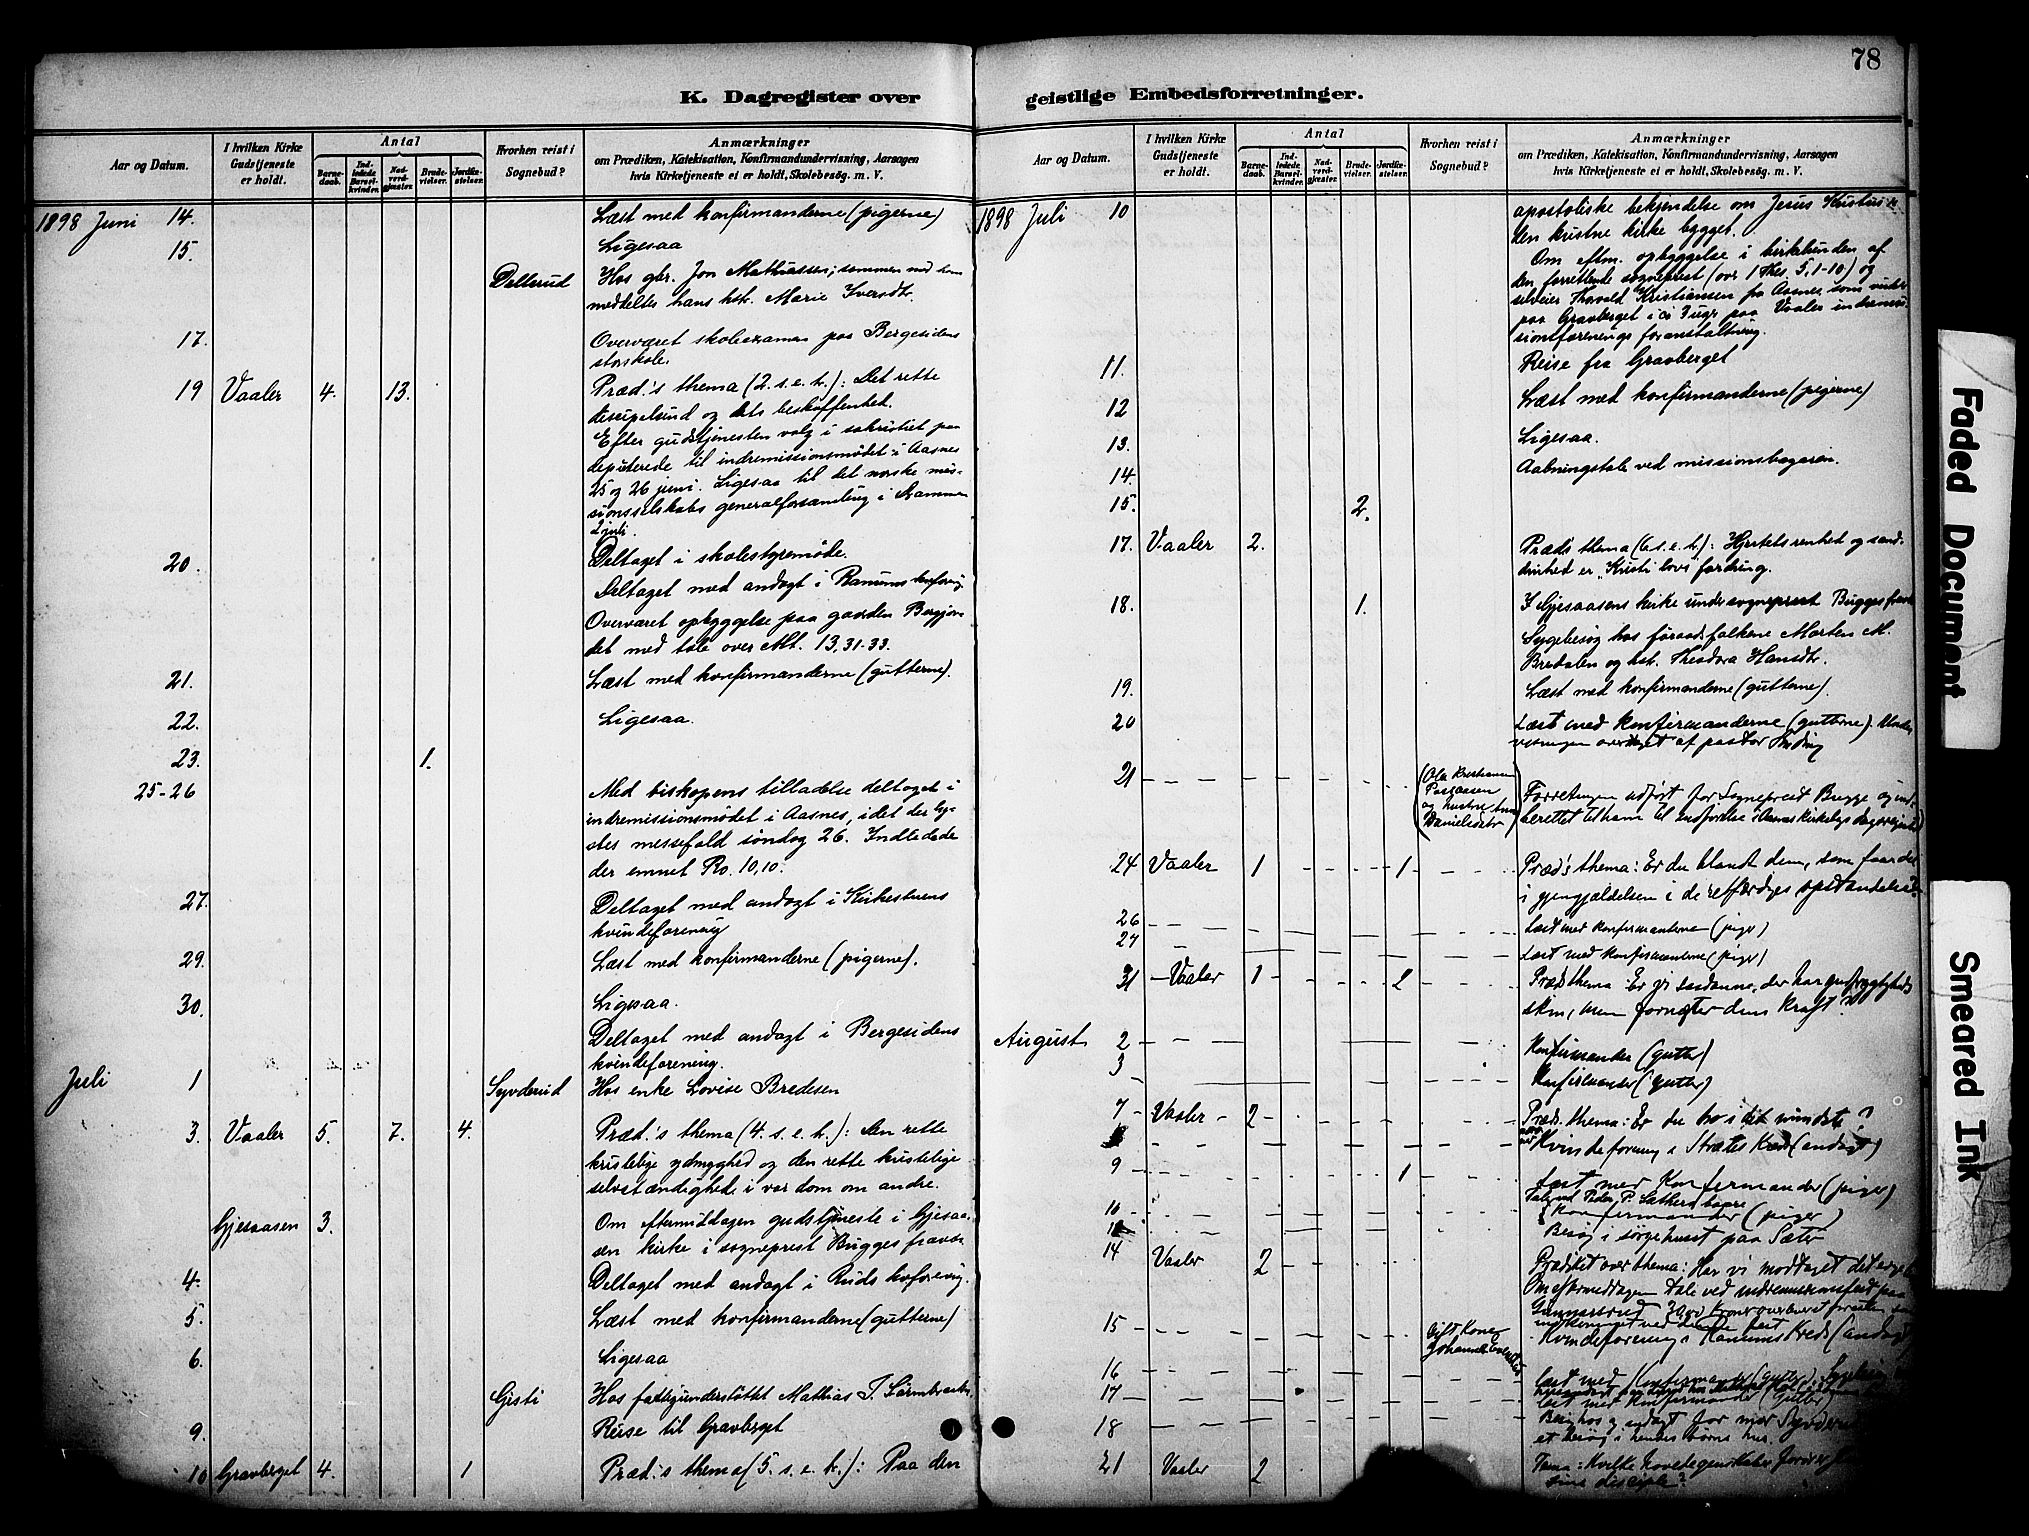 78
K. Dagregister over
geistlige Embedsforretninger.
Aar og Datum.
I hvilken Kirke Gudstjeneste er holdt.
Antal
Barnedaab.
Indledede Barselkvinder.
Nadverdgjester.
Brudevielser.
Jordfæstelser.
Hvorhen reist i Sognebud?
Anmærkninger
om Prædiken, Katekisation, Konfirmandundervisning, Aarsagen
hvis Kirketjeneste ei er holdt, Skolebesøg. m. V.
1898 Juni 14. Læst med konfirmanderne (pigerne)
15. Ligesaa
Dellerud Hos gbr. Jon Mathiassen; sammen med ham
meddeltes hans hst. Marie Iversdtr.
17. Overværet skoleexamen paa Bergesidens
storskole.
19 Vaaler 4. 13. Præd.'s thema (2. s. e. t.): Det rette
discipelsind og dets beskaffenhed.
Efter gudstjenesten valg i sakristiet paa
deputerede til indremissionsmødet i Aasnes
25 og 26 juni. Ligesaa til det norske mis-
sionsselskabs generalforsamling i Drammen
2 juli.
20. Deltaget i skolestyremøde.
Deltaget med andagt i
Overværet opbyggelse paa gaarden
det med tale over Mt. 13,31-33.
21. Læst med konfirmanderne (gutterne).
22. Ligesaa.
23. 1.
25-26 Med biskopens tilladelse deltaget i
indremissionsmødet i Aasnes, idet der lys-
tes messefald søndag 26. Indledede
der emnet Ro. 10,10.
27. Deltaget med andagt i Kirkestuens
kvindeforening
29. Læst med konfirmanderne (pigerne).
30. Ligesaa.
Deltaget med andagt i Bergesidens
kvindeforening.
Juli 1 Syvderud Hos enke Lovise Bredesen
3. Vaaler 5. 7. 4. Præd.'s thema (4. s. e. t.): Den rette
kristelige ydmyghed og den rette kristelige
selvstændighed i vor dom om andre.
Gjesaasen 3. Om eftermiddagen gudstjeneste i Gjesaa-
sen kirke i sogneprest Bugges fravær
4. Deltaget med andagt i Ruds kvforening.
5. Læst med konfirmanderne (gutterne)
6. Ligesaa
Gisti Hos fattigunderstøttet Mathias J.
9. Reise til Gravberget
10 Gravberget 4. 1 Præd.'s thema (5. s. e. t.): Paa den
Aar og Datum.
I hvilken Kirke Gudstjeneste er holdt.
Antal
Barnedaab.
Indledede Barselkvinder.
Nadverdgjester.
Brudevielser.
Jordfæstelser.
Hvorhen reist i Sognebud?
Anmærkninger
om Prædiken, Katekisation, Konfirmandundervisning, Aarsagen
hvis Kirketjeneste ei er holdt, Skolebesøg. m. V.
1898 Juli 10 apostoliske bekjendelse om Jesus Kristus er
den kristne kirke bygget.
Om eftm. opbyggelse i kirkelunden af
den forrettende sogneprest (over 1 Thes. 5,1-10) og
selveier Thorvald Kristiansen fra Aasnes som virker
paa Gravberget i ca 3 uger paa Vaaler indremis-
sionsforenings foranstaltning.
11. Reise fra Gravberget
12 Læst med konfirmanderne (pigerne)
13. Ligesaa.
14. Aabningstale ved missionsbazaren.
15. 2.
17. Vaaler 2. Præd's thema (6. s. e. t.): Hjertets renhed og sand-
druhed er "Kristi lovs" fordring.
18. 1. I Gjesaasens kirke under sogneprest Bugges
Sygebesøg hos føraadsfolkene Morten M.
Bredalen og hst. Theodora Hansdtr.
19. Læst med konfirmanderne (gutterne).
20 Læst med konfirmanderne (gutterne). Under-
visningen overtaget af pastor
21 (Ola Kristiansen
og hustru
Danielsdtr) Forretningen udført for Sogneprest Bugge og ind-
berettet til ham til indførelse i Aasnes Kirkebogs dagregister
24 Vaaler 1 1 Præd's thema: Er du blandt dem, som faar del
i gjengjældelsen i de retfærdiges opstandelse?
26 Læst med konfirmanterne (piger)
27 Læst med konfirmanterne (piger)
31 Vaaler 1 2 Præds thema: Er vi saadanne, der har gudfrygtigheds
skin, men fornegter dens kraft?
August 2 Konfirmander (gutter)
3 Konfirmander (gutter)
7 Vaaler 2 Præd. thema: Er du tro i det mindste?
Kvindeforening i Strætes Kreds (andagt)
9 1 Læst med Konfirmander (piger)
10 Konfirmander (piger)
Besøg i sørgehuset paa Sæter
14 Vaaler 2 Prædiket over thema: Har vi modtaget det
Om eftermiddagen tale ved indremissionsfest paa
15 Gift Kone
Johanne
Kvindeforening i Kreds (andagt)
16 Læst med Konfirmander (gutter).
17 Læst med Konfirmander (Gutter)
18
et besøg i hendes børns hus.
21 Vaaler 2 Tema: Hvilke hovedegenskaber
sine disciple?
Faded Document
Smeared Ink